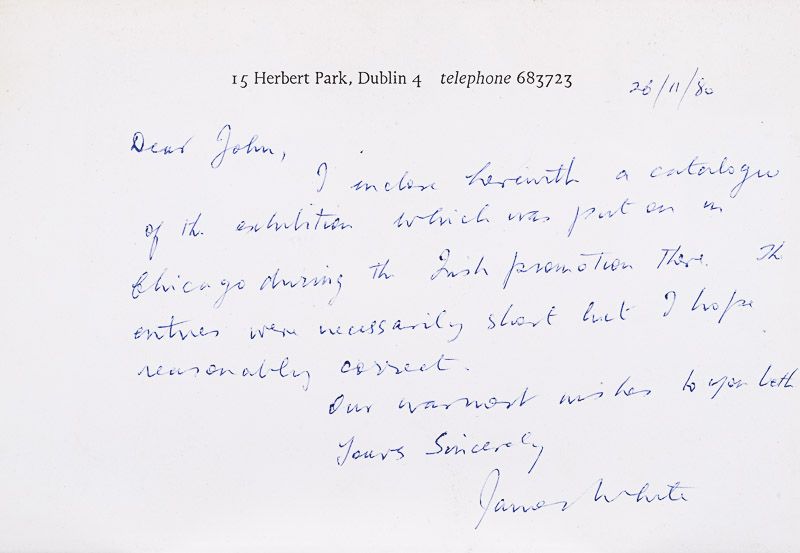 15 Herbert Park, Dublin 4 telephone 683723
28/11/80
Dear John,
I enclose herewith a catalogue
of the exhibition which was put on in
Chicago during the Irish promotion there. The
entries were necessarily short but I hope
reasonably correct.
Our warmest wishes to you both
Yours Sincerely
James White